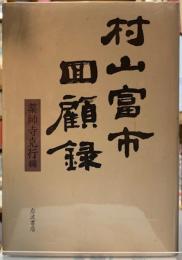 村山富市
回顧録
薬師寺克行編
岩波書店